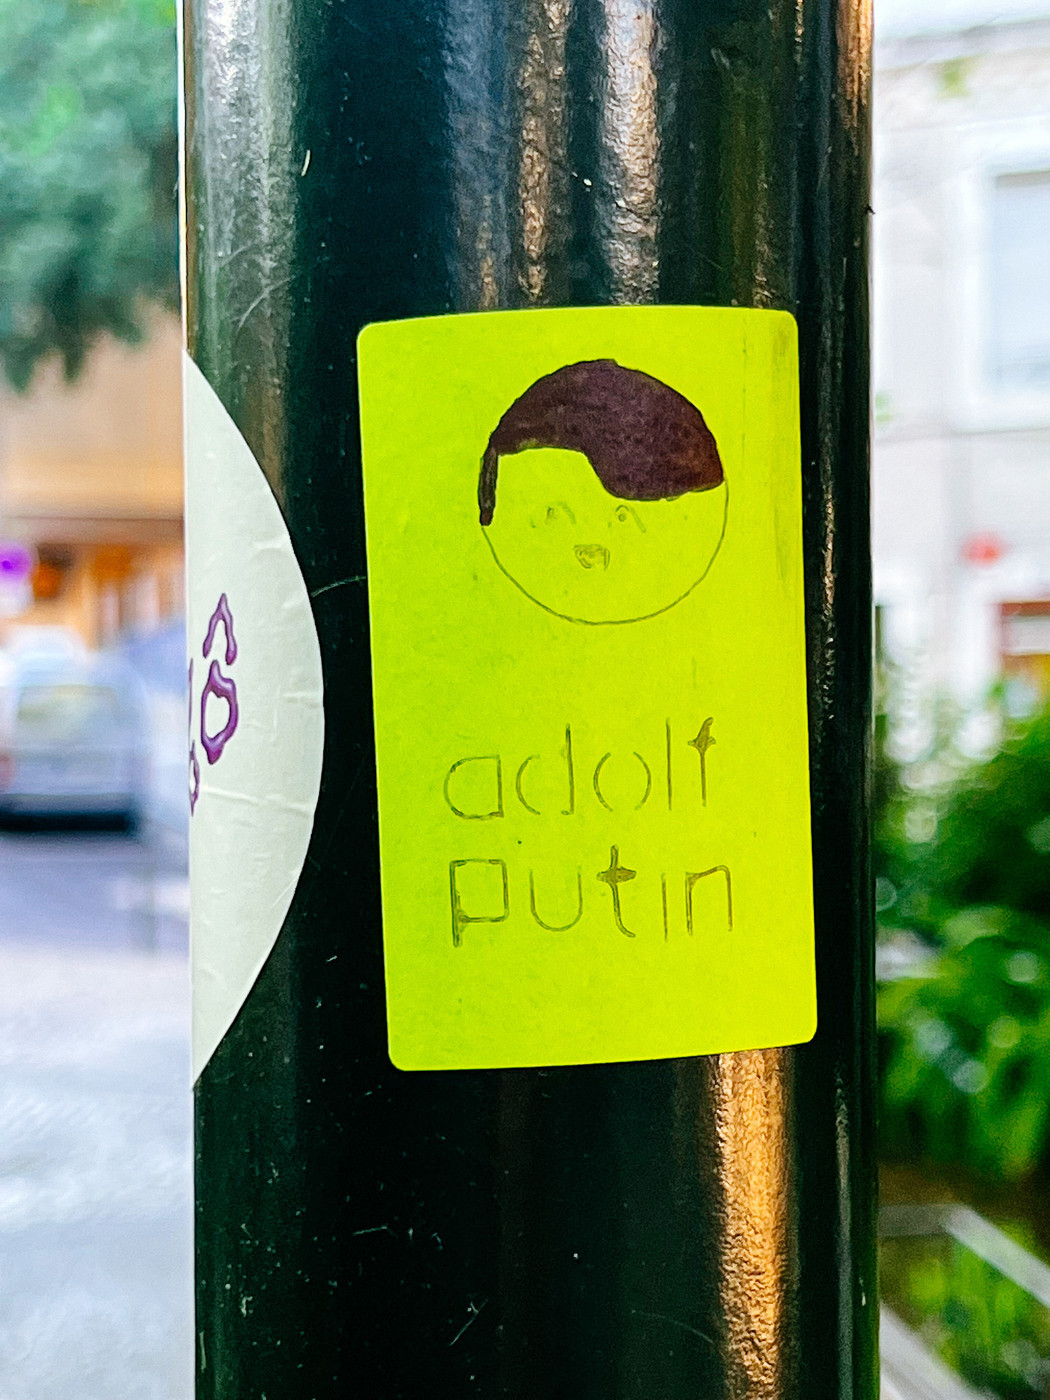 adolf
Putin